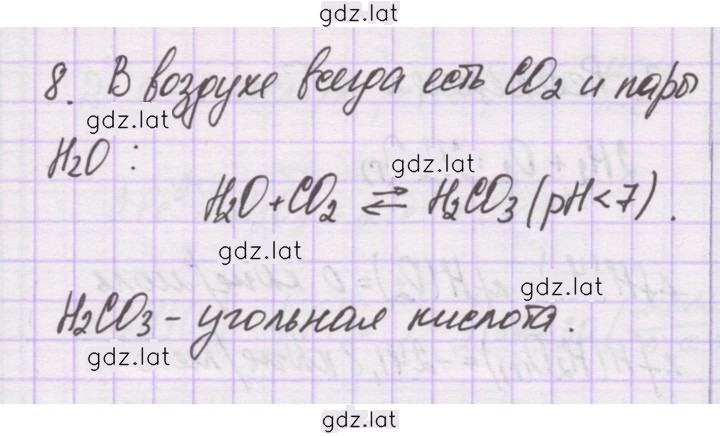 gdz.lat
8. В воздухе всегда есть CO₂ и пары
gdz.lat
H₂O :
gdz.lat
H₂O + CO₂ ⇄ H₂CO₃ (pH < 7).
gdz.lat
gdz.lat
H₂CO₃ - угольная кислота.
gdz.lat
gdz.lat